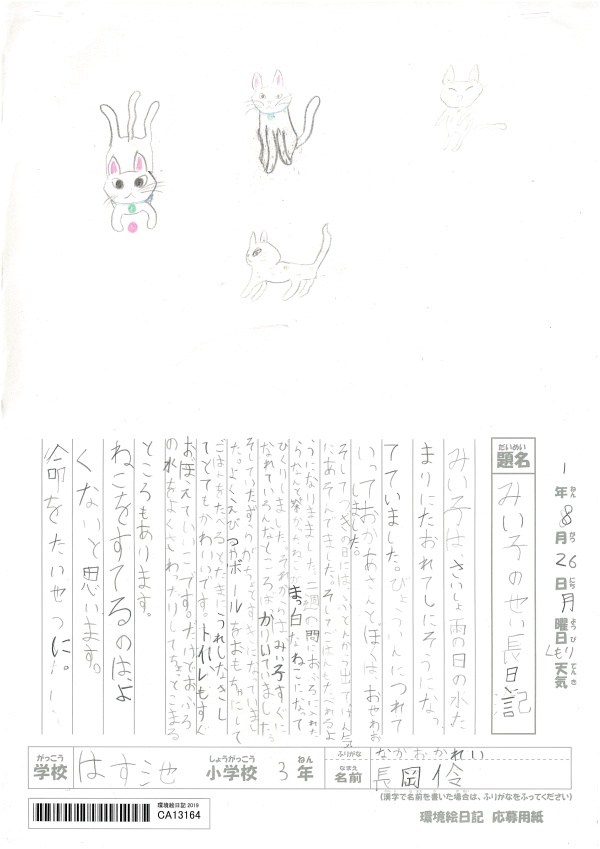 1年8月26日月曜日くもり天気
ねん がつ にち ようび てんき
だいめい
題名
みい子のせい長日記
みい子は、さいしょ雨の日の水た
まりにたおれてしにそうになっ
てていました。びょういんにつれて
いっておかあさんとぼくは、おせわを
しました。
そしてつぎの日には、ふとんからつ出てげん気
にあそんでました。そしてごはんもたべれるよ
うになりました。二週間の間におふろに入れた
らなんと栄かったねこがまっ白なねこになって
びっくりしました。それからはみい子すぐに
なれていろんなところをかけていました。
そしていたずらのがちょっとすきになっていまし
た。よくえびつかボールをおもちゃにして
ごはんをたべるときたまにうれしなきし
てとてもかわいいです。トイレもすぐ
おぼえていいこです。だけどおふろ
の水をよくさわったりしてちょっとこまる
ところもあります。
ねこをすてるのは、よ
くないと思います。
命をたいせつに。
がっこう
学校
はす池
しょうがっこう
小学校
3年
ねん
ふりがな
なかおかれい
なまえ
名前
長岡伶
(漢字で名前を書いた場合は、ふりがなをふってください)
環境絵日記2019
CA13164
環境絵日記 応募用紙